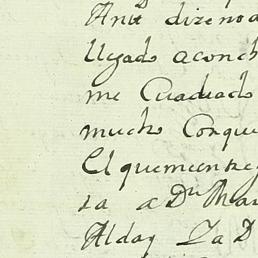 Antt dize no a
llegado aconch
me Cuadado
mucho Conque
El quemeentreg
sa a Dn Mar
Alday Ya D